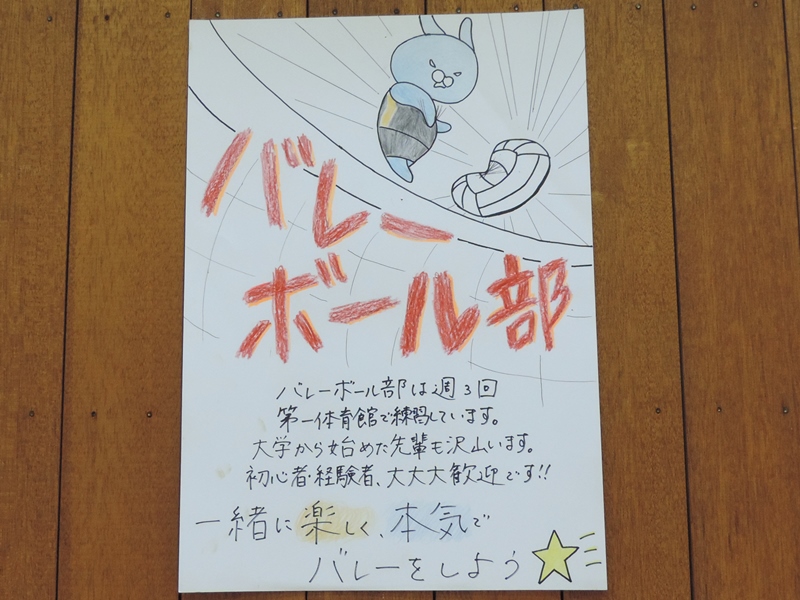 バレー
ボール部
バレーボール部は週3回
第一体育館で練習しています。
大学から始めた先輩も沢山います。
初心者・経験者、大大大歓迎です!!
一緒に楽しく、本気で
バレーをしよう